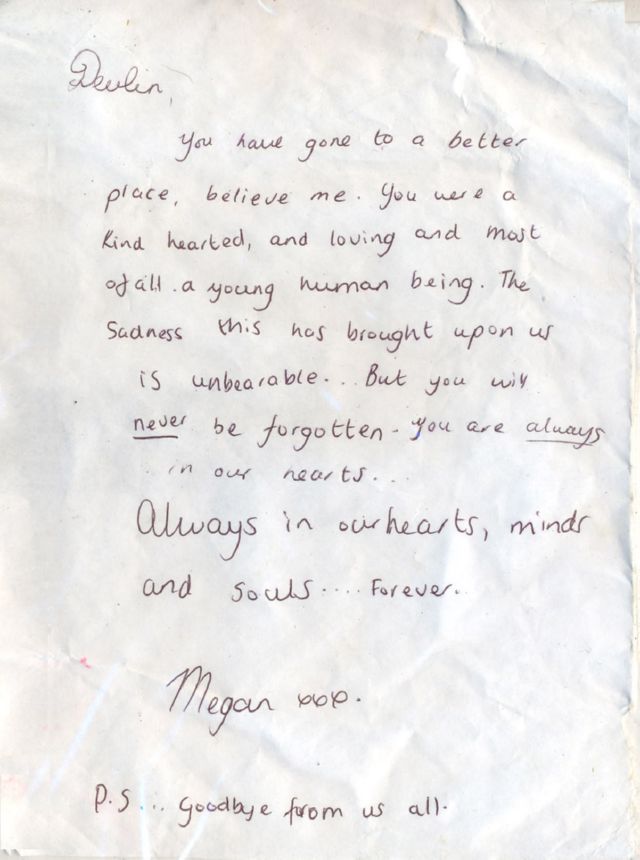 Devlin,
You have gone to a better
place, believe me. You were a
kind hearted, and loving and most
of all a young human being. The
Sadness this has brought upon us
is unbearable... But you will
never be forgotten. You are always
in our hearts...
Always in our hearts, minds
and souls.... Forever.
Megan xxx.
P.S... Goodbye from us all.